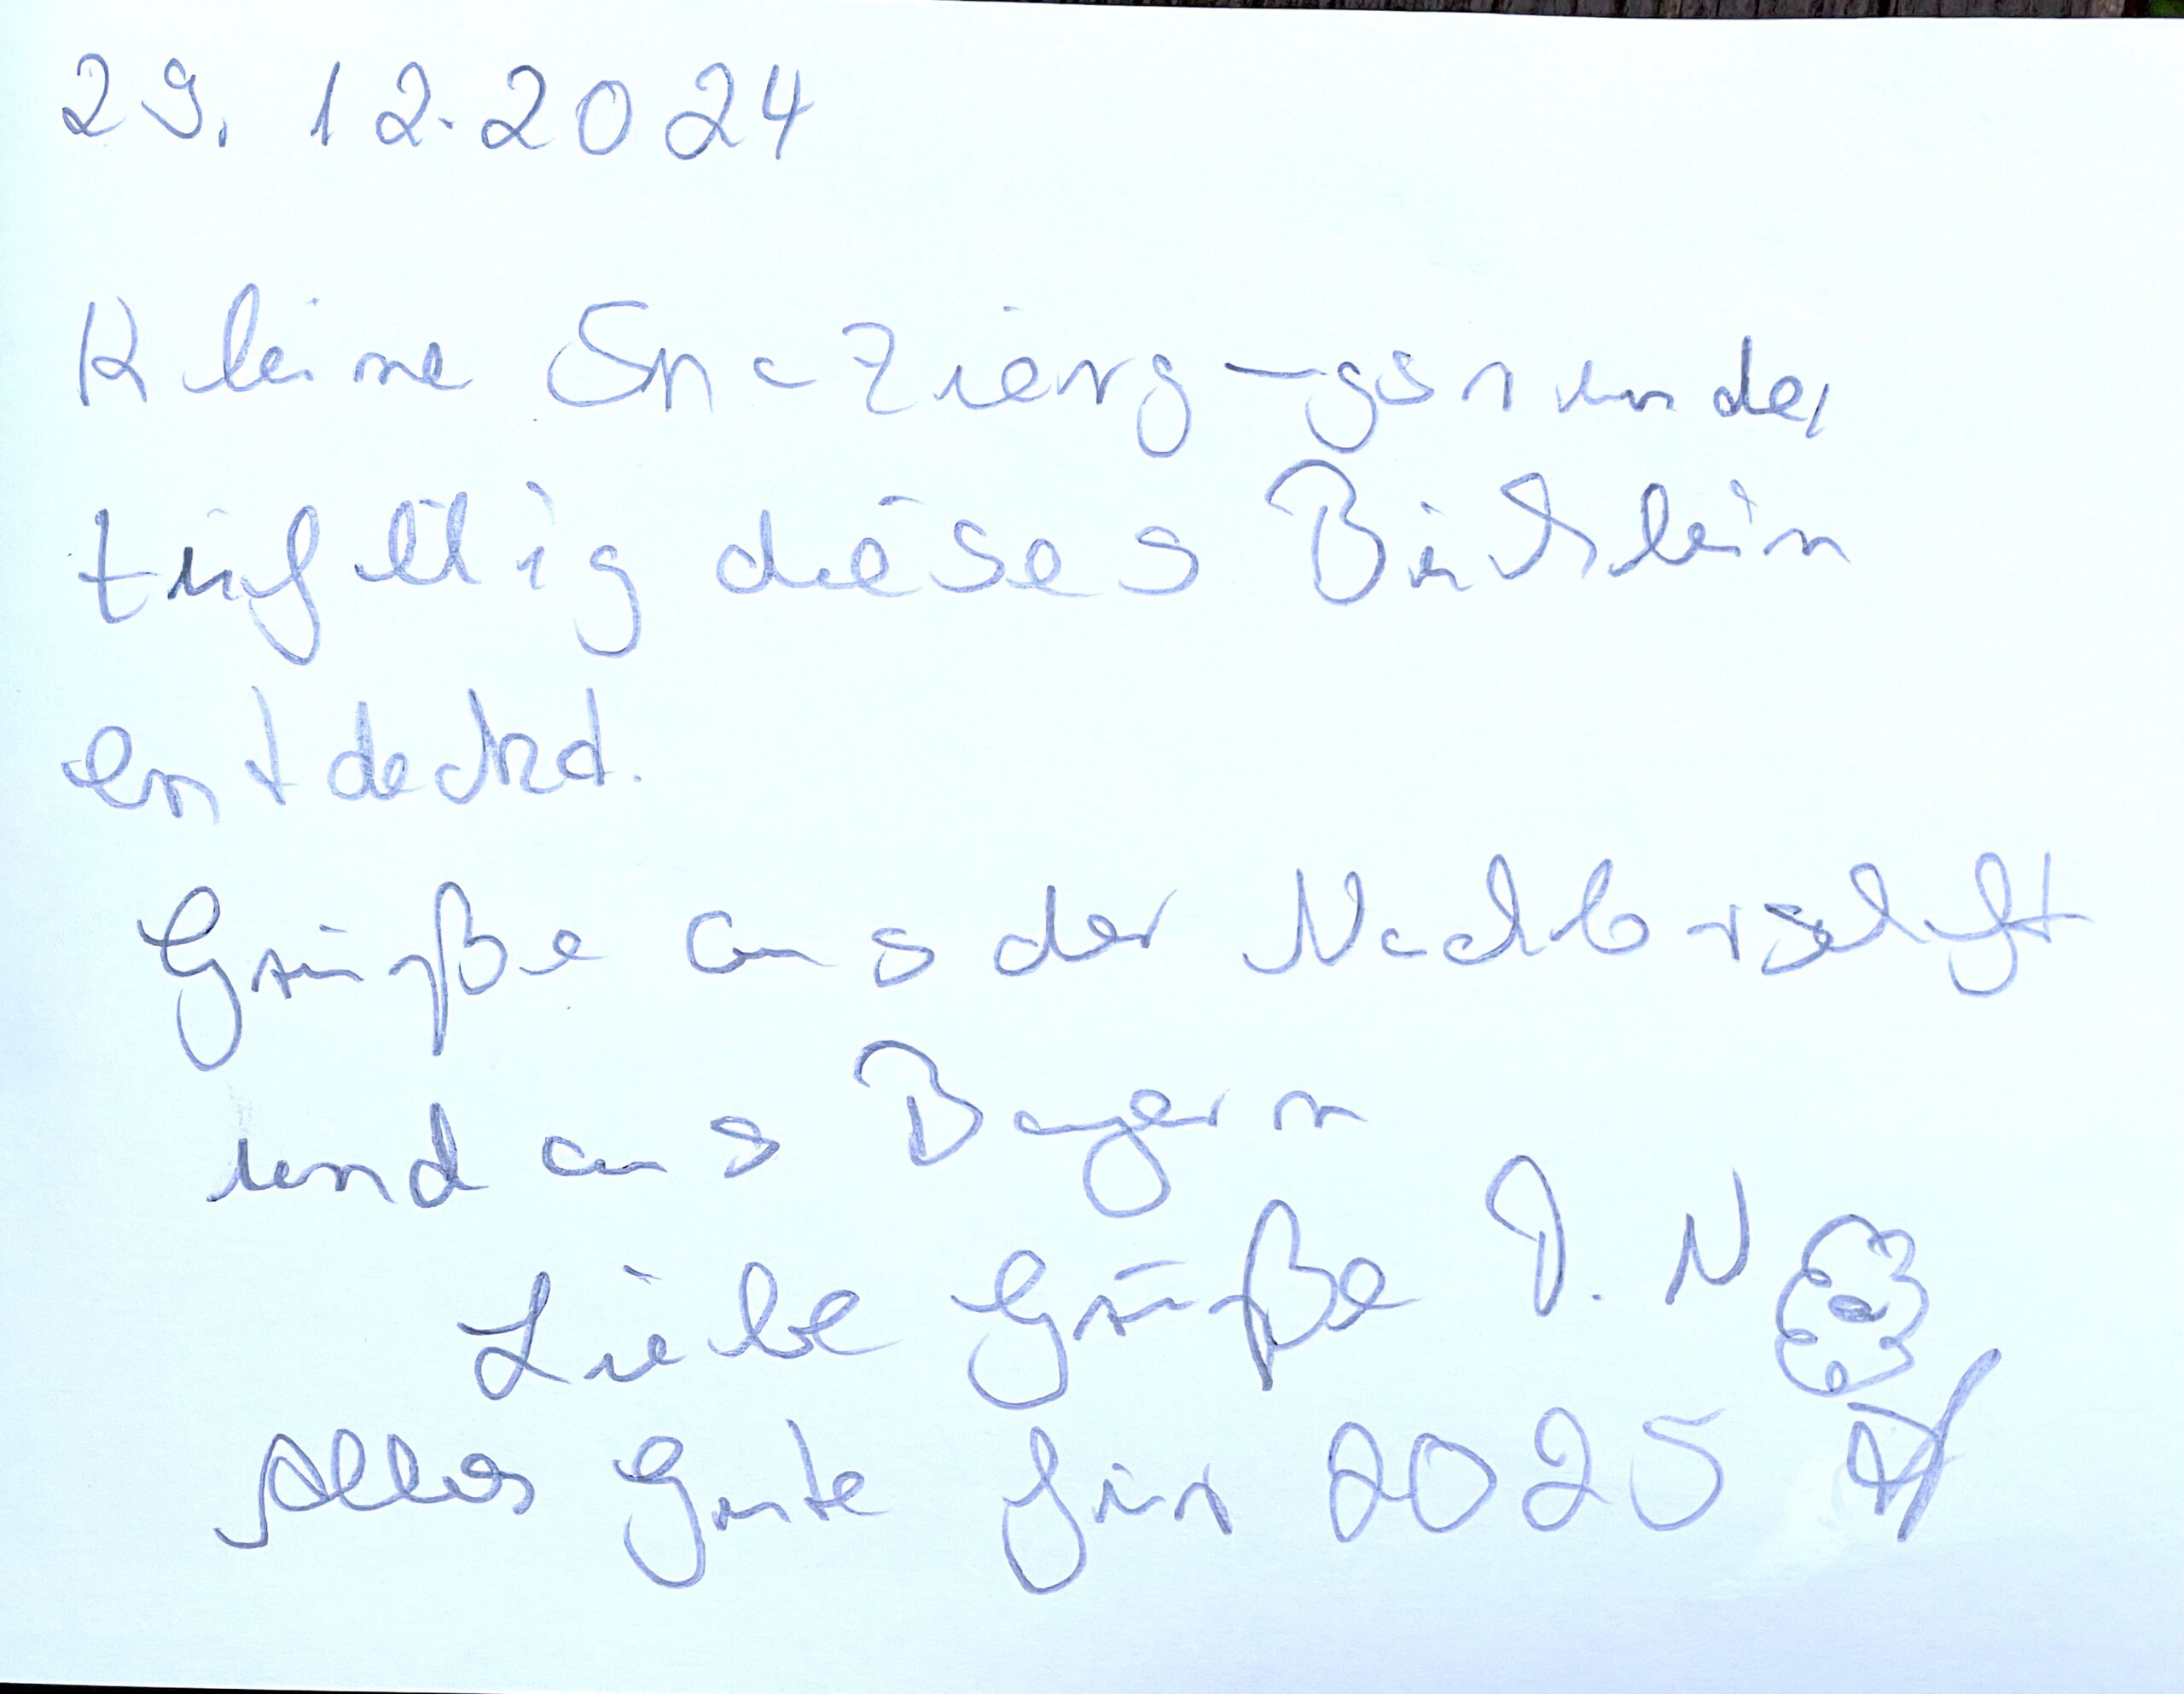 29.12.2024
Kleine Spazierg-gsrunde,
zufällig dieses Büchlein
entdeckd.
Grüße aus der Nachbarschaft
und aus Bayern
Liebe Grüße J. N
Alles Gute für 2025